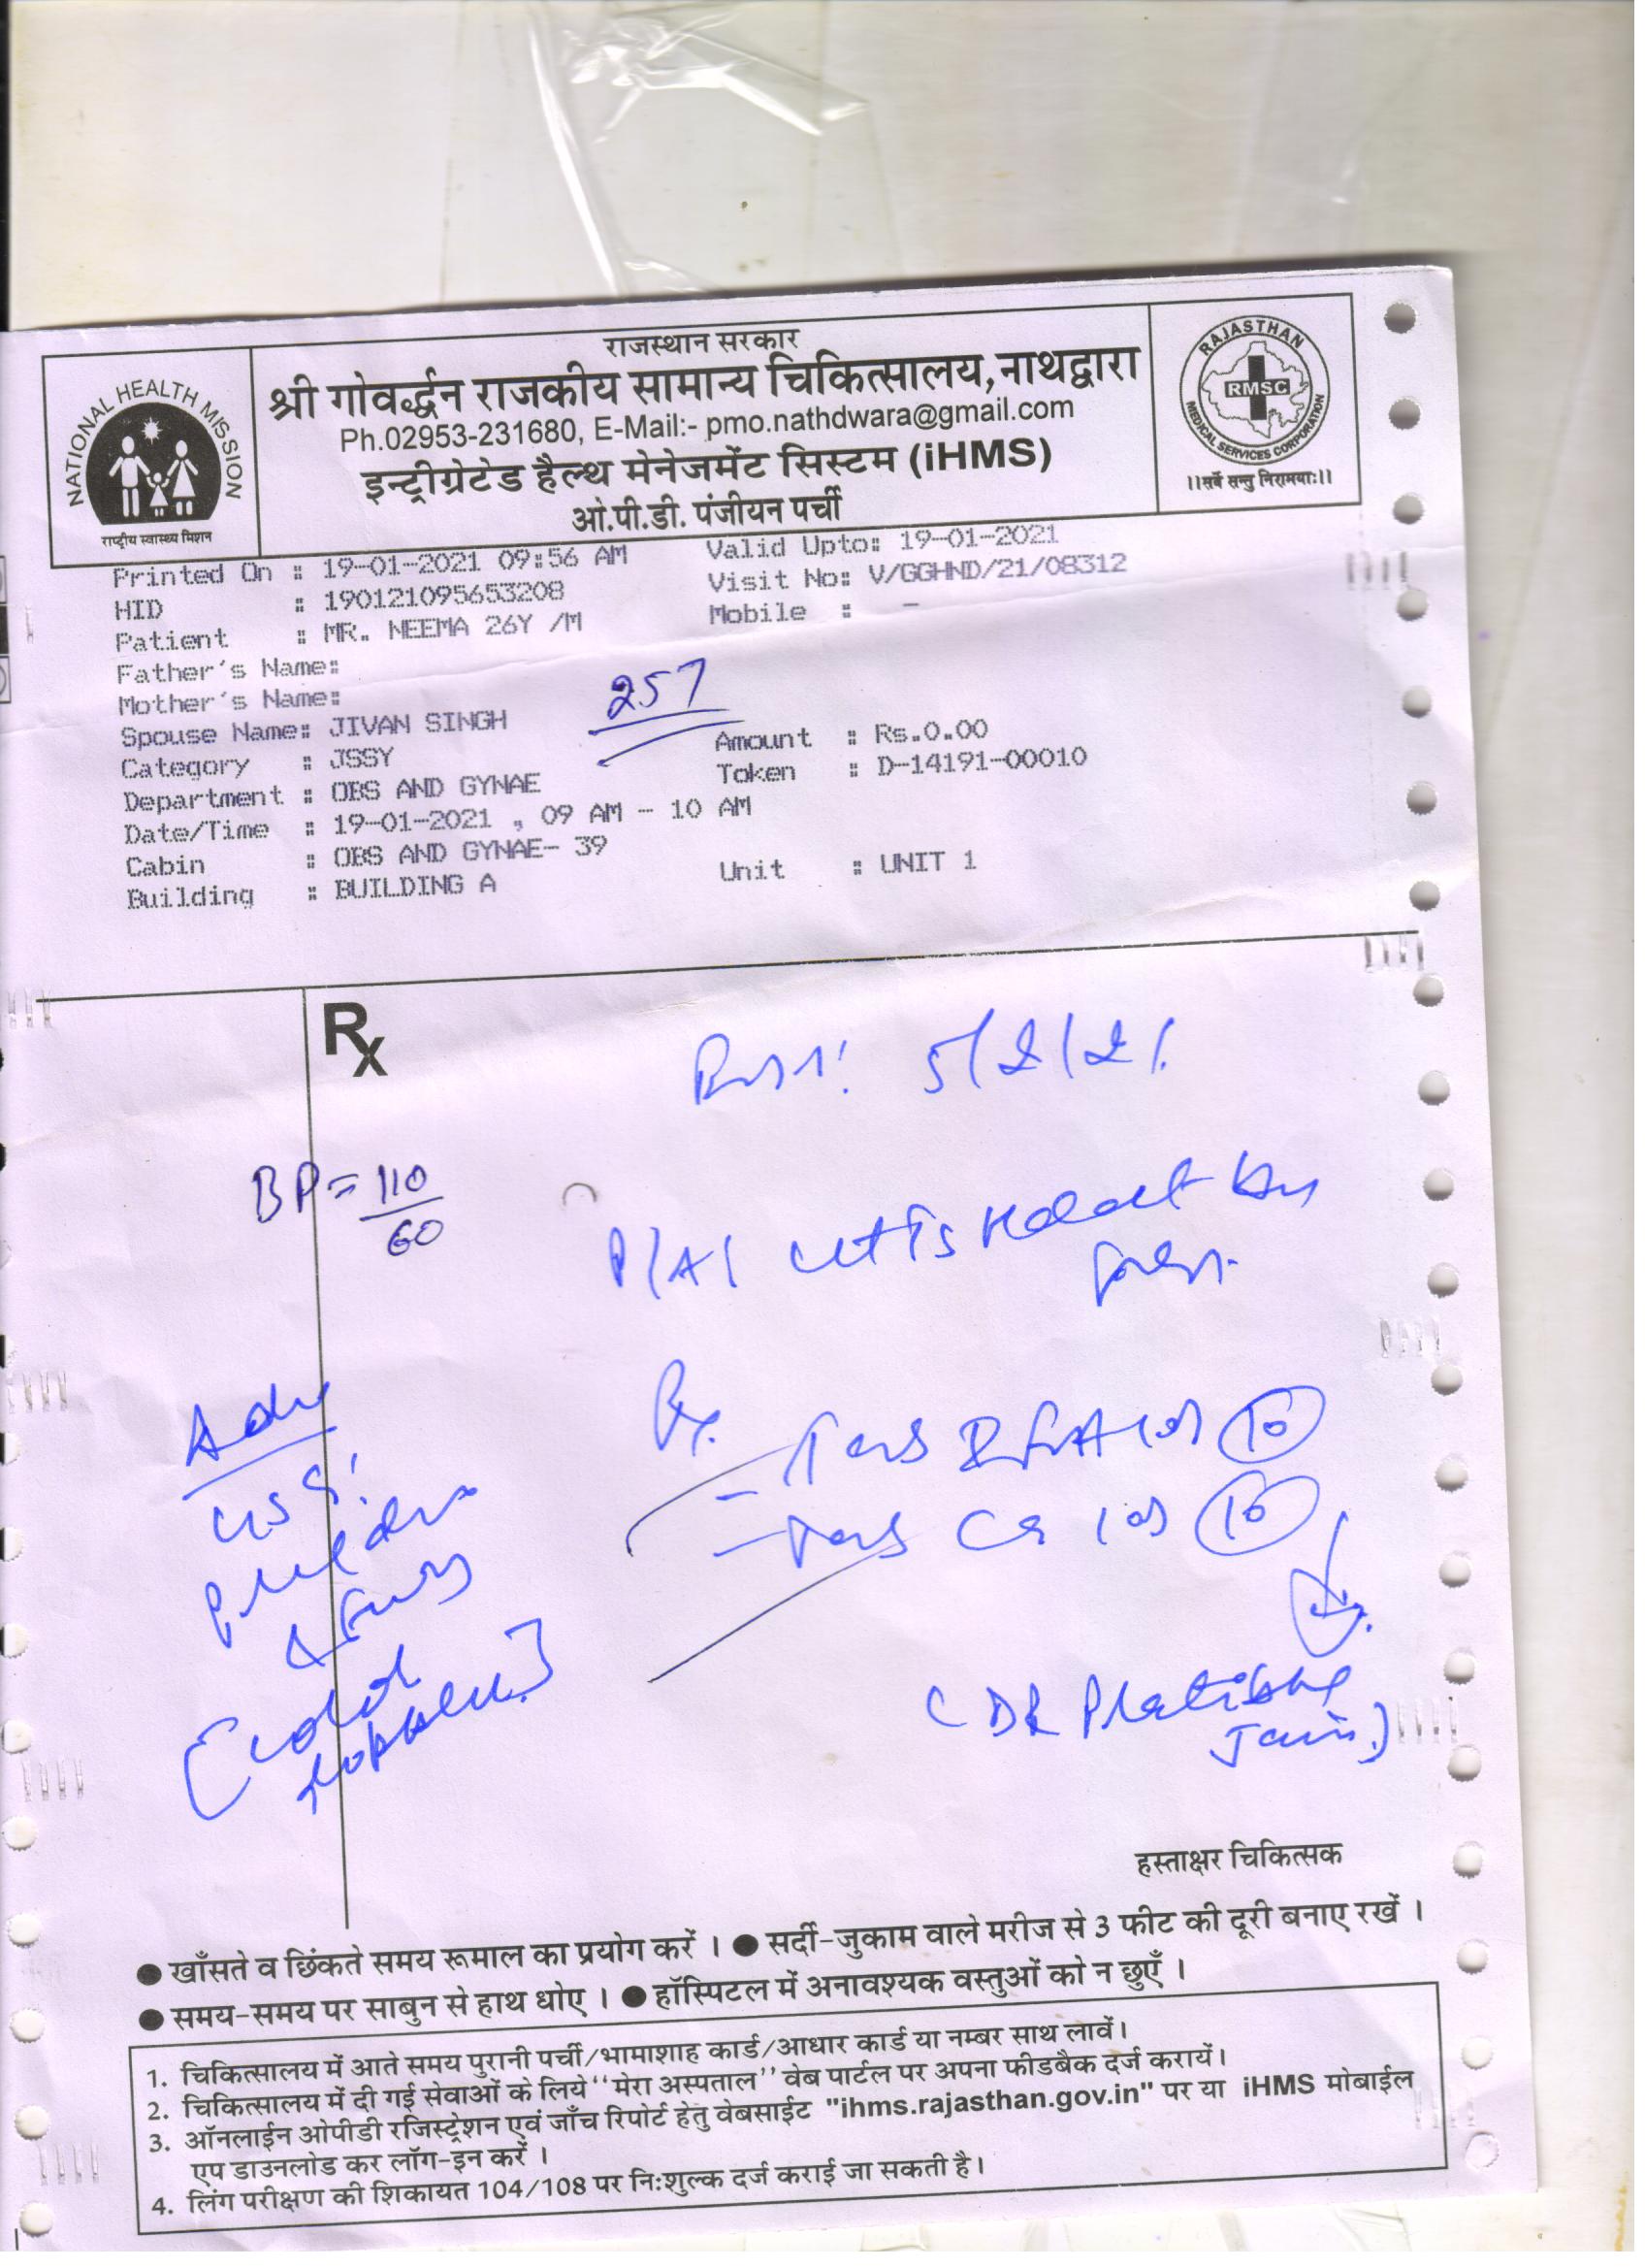 राजस्थान सरकार
श्री गोवर्द्धन राजकीय सामान्य चिकित्सालय,नाथद्वारा
Ph.02953-231680, E-Mail:- pmo.nathdwara@gmail.com
इन्ट्रीग्रेटेड हैल्थ मेनेजमेंट सिस्टम (iHMS)
ओ.पी.डी. पंजीयन पर्ची
NATIONAL HEALTH MISSION
राष्ट्रीय स्वास्थ्य मिशन
RAJASTHAN
RMSC
MEDICAL SERVICES CORPORATION
।।सर्वे सन्तु निरामयाः।।
Printed On : 19-01-2021 09:56 AM Valid Upto: 19-01-2021
HID : 190121095653208 Visit No: V/GGHND/21/08312
Patient : MR. NEEMA 26Y /M Mobile : -
Father's Name:
Mother's Name:
257
Spouse Name: JIVAN SINGH
Category : JSSY Amount : Rs.0.00
Department : OBS AND GYNAE Token : D-14191-00010
Date/Time : 19-01-2021 , 09 AM - 10 AM
Cabin : OBS AND GYNAE- 39
Building : BUILDING A Unit : UNIT 1
Rx
5/2/21
BP = 110/60
P/A/
Rx
Adv
10
10
[color
doppler]
(DR Pratibha
Jain)
हस्ताक्षर चिकित्सक
● खाँसते व छिंकते समय रूमाल का प्रयोग करें । ● सर्दी-जुकाम वाले मरीज से 3 फीट की दूरी बनाए रखें ।
● समय-समय पर साबुन से हाथ धोए । ● हॉस्पिटल में अनावश्यक वस्तुओं को न छुएँ ।
1. चिकित्सालय में आते समय पुरानी पर्ची/भामाशाह कार्ड/आधार कार्ड या नम्बर साथ लावें।
2. चिकित्सालय में दी गई सेवाओं के लिये "मेरा अस्पताल" वेब पार्टल पर अपना फीडबैक दर्ज करायें।
3. ऑनलाईन ओपीडी रजिस्ट्रेशन एवं जाँच रिपोर्ट हेतु वेबसाईट "ihms.rajasthan.gov.in" पर या iHMS मोबाईल
एप डाउनलोड कर लॉग-इन करें ।
4. लिंग परीक्षण की शिकायत 104/108 पर निःशुल्क दर्ज कराई जा सकती है।